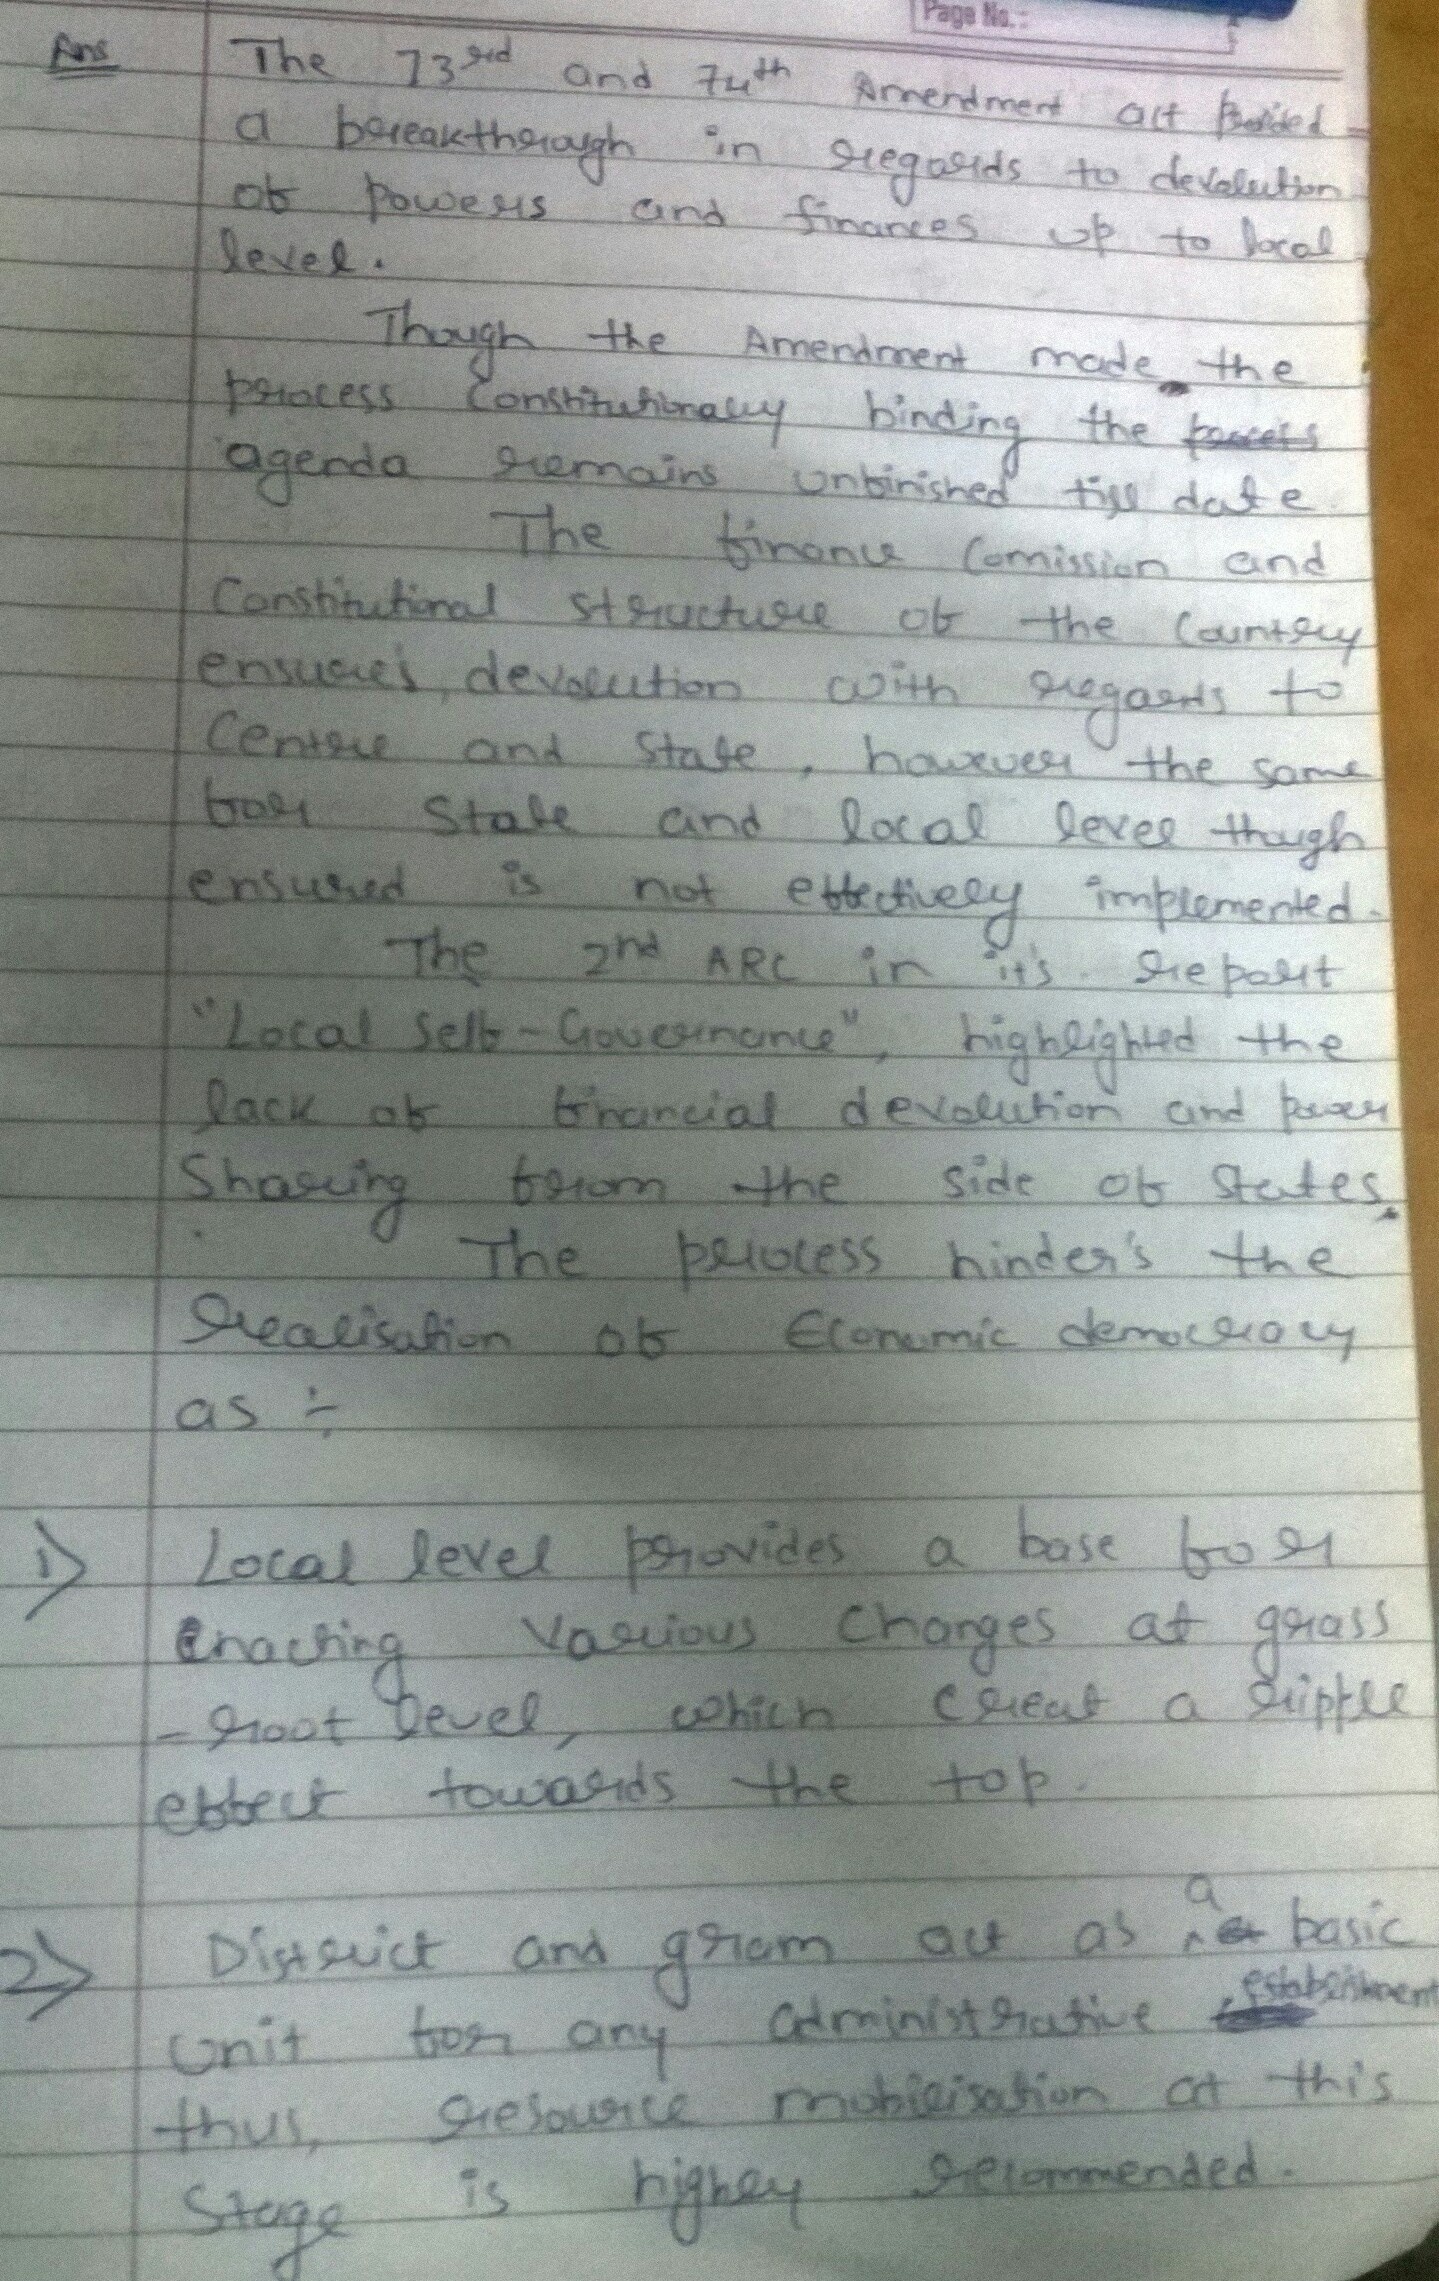 Page No.:
Ans The 73rd and 74th Amendment act Provided
a breakthrough in regards to devolution
of Powers and finances up to local
level.
Though the Amendment made the
process Constitutionally binding the process
agenda remains unfinished till date.
The finance Comission and
Constitutional structure of the Country
ensure's, devolution with regards to
Centre and State, however the same
for State and local level though
ensured is not effectively implemented.
The 2nd ARC in it's report
"Local Self-Governance", highlighted the
lack of financial devolution and power
Sharing from the side of States.
The process hinder's the
realisation of Economic democracy
as :-
1) Local level provides a base for
enacting various changes at grass
-root level, which creat a ripple
effect towards the top.
2) District and gram act as a basic
unit for any administrative establishment
thus, resource mobilisation at this
stage is highly recommended.